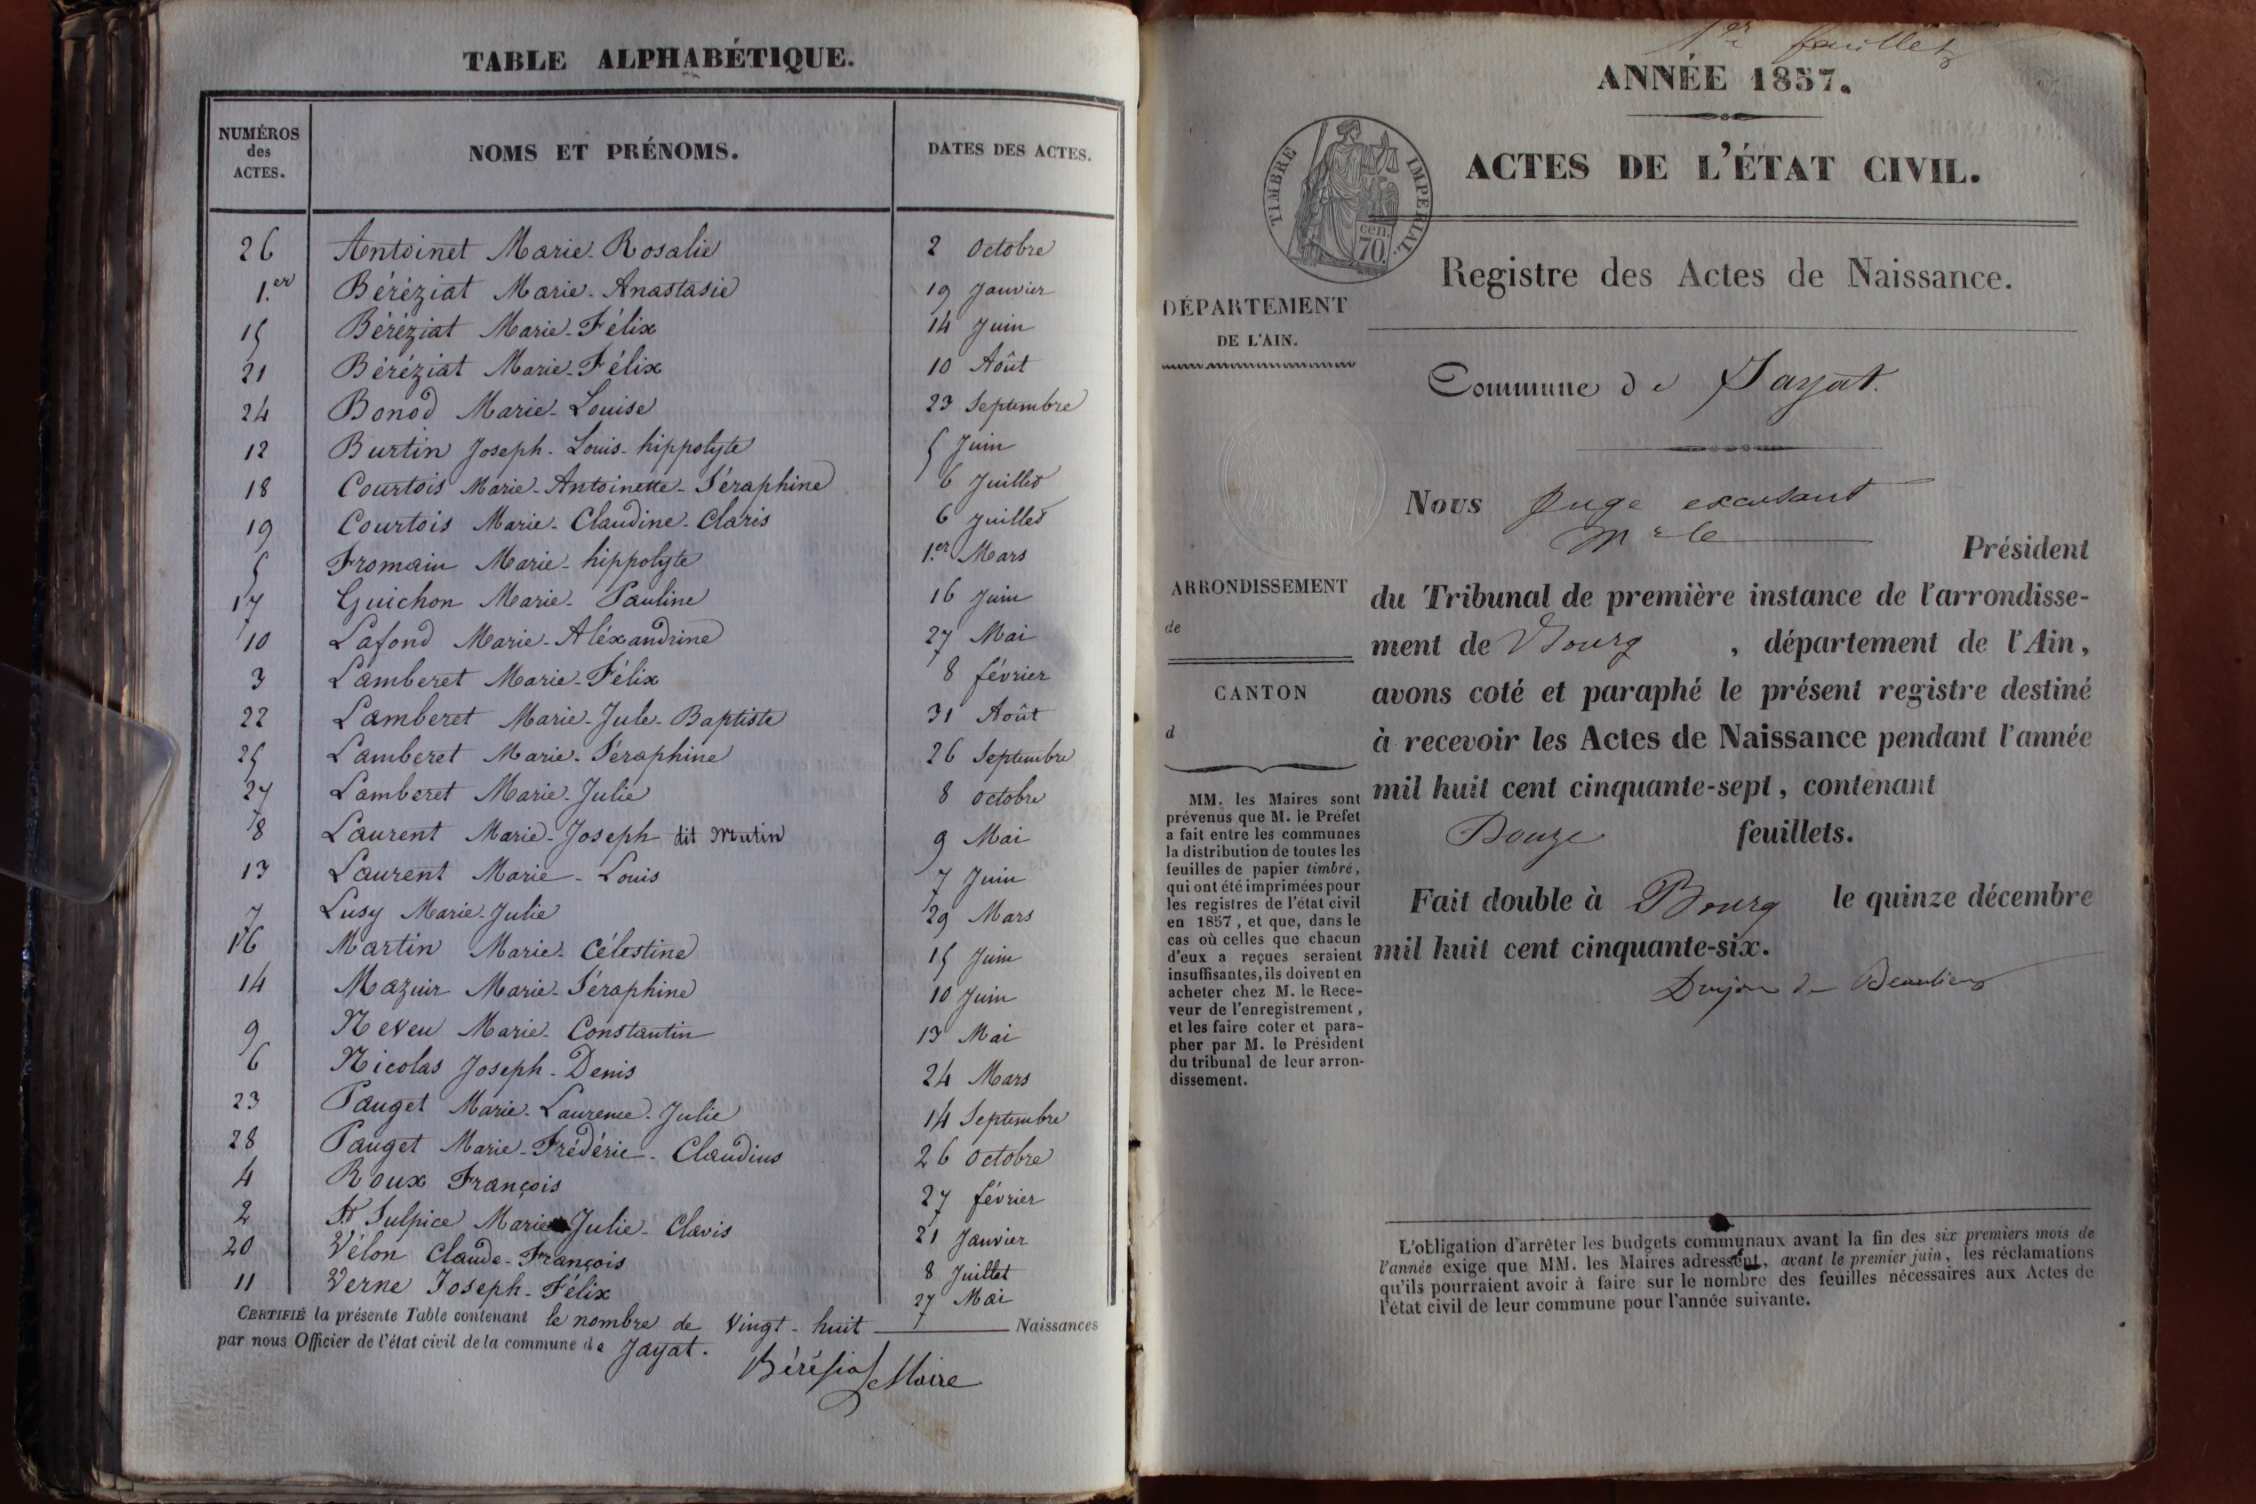 TABLE ALPHABÉTIQUE.
NUMÉROS des ACTES. NOMS ET PRÉNOMS. DATES DES ACTES.
26 Antoinet Marie-Rosalie 2 Octobre
1.er Béréziat Marie-Anastasie 19 Janvier
15 Béréziat Marie-Félix 14 Juin
21 Béréziat Marie-Félix 10 Août
24 Bonod Marie-Louise 23 Septembre
12 Burtin Joseph-Louis-hippolyte 5 Juin
18 Courtois Marie-Antoinette-Séraphine 6 Juillet
19 Courtois Marie-Claudine-Claris 6 Juillet
5 Fromain Marie-hippolyte 1.er Mars
17 Guichon Marie-Pauline 16 Juin
10 Lafond Marie-Aléxandrine 27 Mai
3 Lamberet Marie-Félix 8 février
22 Lamberet Marie-Jule-Baptiste 31 Août
25 Lamberet Marie-Séraphine 26 Septembre
27 Lamberet Marie-Julie 8 octobre
8 Laurent Marie-Joseph dit Mutin 9 Mai
13 Laurent Marie-Louis 7 Juin
7 Lusy Marie-Julie 29 Mars
16 Martin Marie-Célestine 15 Juin
14 Mazuir Marie-Séraphine 10 Juin
9 Neveu Marie-Constantin 13 Mai
6 Nicolas Joseph-Denis 24 Mars
23 Pauget Marie-Laurence-Julie 14 Septembre
28 Pauget Marie-Frédéric-Claudius 26 octobre
4 Roux François 27 février
2 St Sulpice Marie Julie-Clavis 21 Janvier
20 Vélon Claude-François 8 Juillet
11 Verne Joseph-Félix 27 Mai
CERTIFIÉ la présente Table contenant le nombre de Vingt-huit Naissances
par nous Officier de l'état civil de la commune de Jayat.
Maire
1er feuillet
ANNÉE 1857.
ACTES DE L'ÉTAT CIVIL.
TIMBRE IMPÉRIAL.
70. cen.
Registre des Actes de Naissance.
DÉPARTEMENT
DE L'AIN.
Commune de Jayat.
Nous Juge excusant
Mr le
Président
du Tribunal de première instance de l'arrondisse-
ment de Bourg, département de l'Ain,
avons coté et paraphé le présent registre destiné
à recevoir les Actes de Naissance pendant l'année
mil huit cent cinquante-sept, contenant
Douze feuillets.
Fait double à Bourg le quinze décembre
mil huit cent cinquante-six.
de Beaulieu
ARRONDISSEMENT
de
CANTON
d
MM. les Maires sont
prévenus que M. le Préfet
a fait entre les communes
la distribution de toutes les
feuilles de papier timbré,
qui ont été imprimées pour
les registres de l'état civil
en 1857, et que, dans le
cas où celles que chacun
d'eux a reçues seraient
insuffisantes, ils doivent en
acheter chez M. le Rece-
veur de l'enregistrement,
et les faire coter et para-
pher par M. le Président
du tribunal de leur arron-
dissement.
L'obligation d'arrêter les budgets communaux avant la fin des six premiers mois de
l'année exige que MM. les Maires adressent, avant le premier juin, les réclamations
qu'ils pourraient avoir à faire sur le nombre des feuilles nécessaires aux Actes de
l'état civil de leur commune pour l'année suivante.